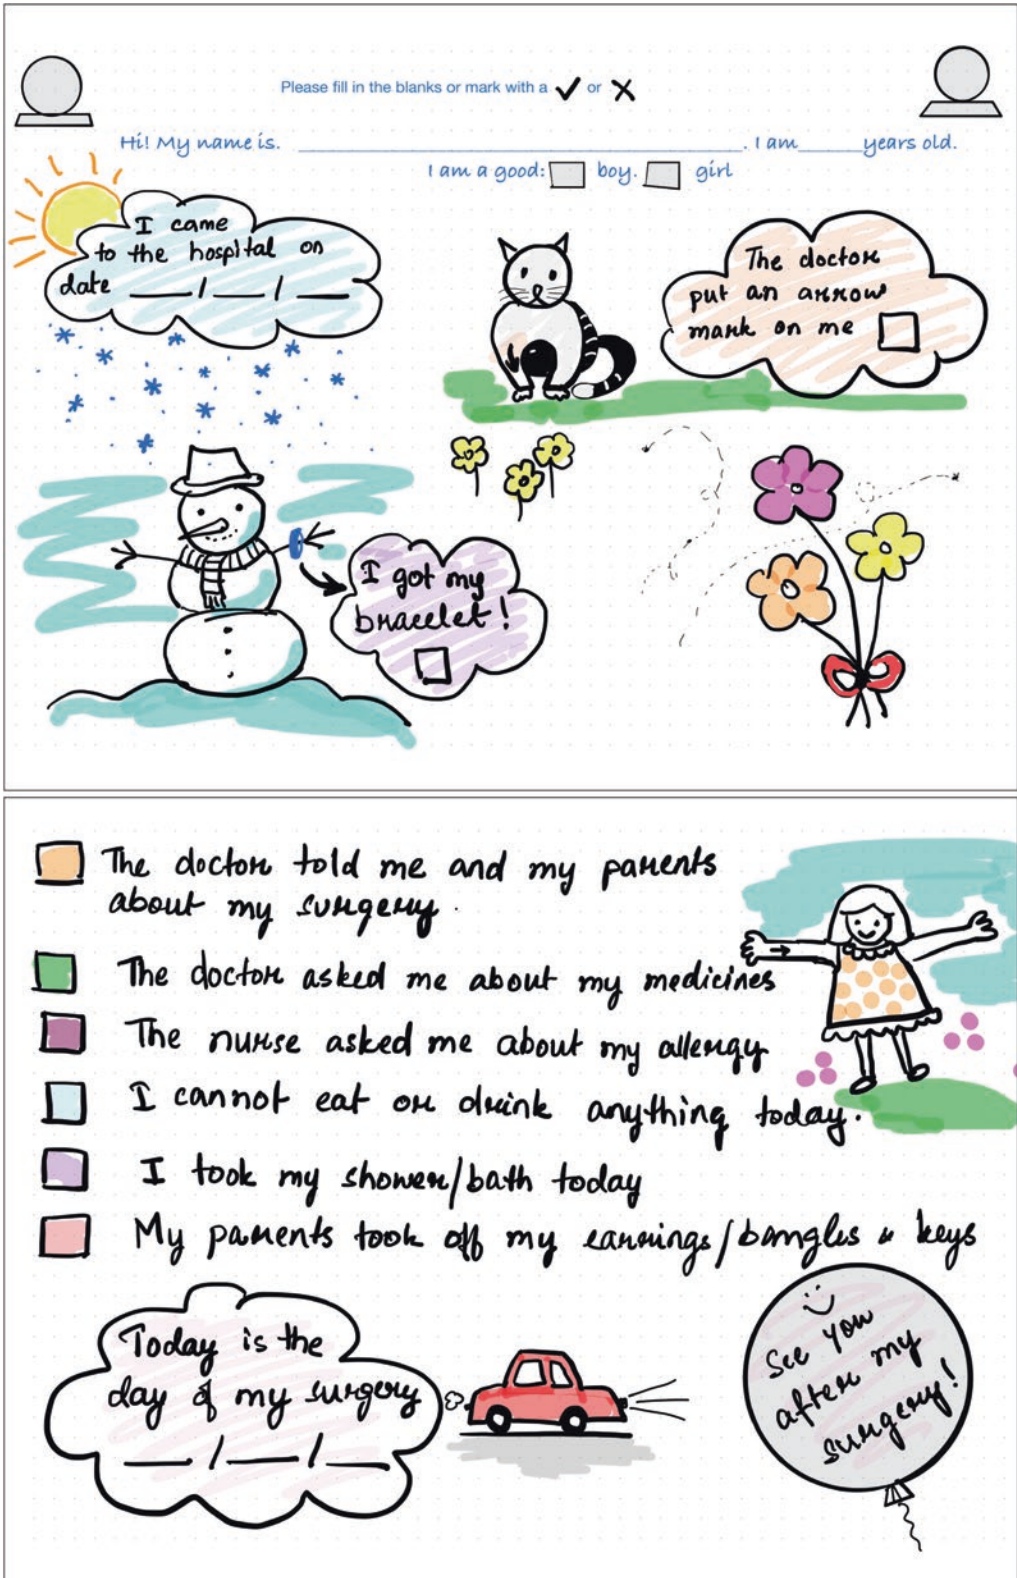 Please fill in the blanks or mark with a ✓ or ✗
Hi! My name is. ______. I am ______ years old.
I am a good: boy. girl
I came
to the hospital on
date ___/___/___
The doctor
put an arrow
mark on me
I got my
bracelet!
The doctor told me and my parents
about my surgery.
The doctor asked me about my medicines
The nurse asked me about my allergy
I cannot eat or drink anything today.
I took my shower/bath today
My parents took off my earrings/bangles & keys
Today is the
day of my surgery
___/___/___
See you
after my
surgery!